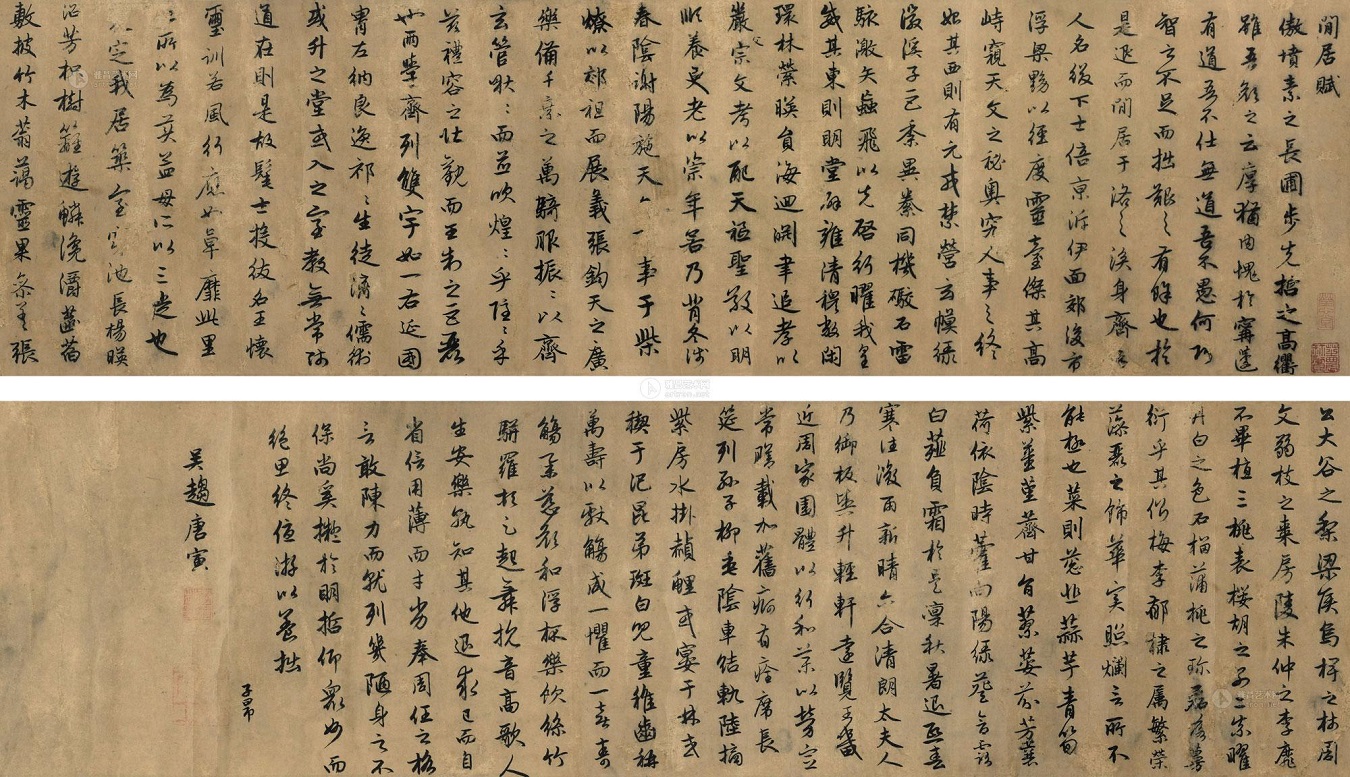 閒居賦
傲墳素之長圃步先哲之高衢
雖吾顏之云厚猶內愧於甯蘧
有道吾不仕無道吾不愚何巧
智之不足而拙艱之有餘也於
是退而閒居于洛之涘身齊逸
人名綴下士倍京泝伊面郊後市
浮梁黝以徑度靈臺傑其高
峙窺天文之秘奧究人事之終
始其西則有元戎禁營玄幙綠
徽谿子巨黍異絭同機礮石雷
駭激矢蝱飛以先啓行曜我皇
威其東則明堂辟雍清穆敞閑
環林縈暎員海迴淵聿追孝以
嚴宗文考以配天秪聖敬以明
順養更老以崇年若乃背冬涉
春陰謝陽施天子有事于柴
燎以郊祖而展義張鈞天之廣
樂備千乘之萬騎服振〻以齊
玄管啾〻而並吹煌〻乎隱〻乎
茲禮容之壯觀而王制之巨麗
也兩學齊列雙宇如一右延國
胄左納良逸祁〻生徒濟〻儒術
或升之堂或入之室教無常師
道在則是故髦士投紱名王懷
璽訓若風行應如草靡此里
仁所以為美孟母所以三遷也
定我居築室穿池長楊暎
沼芳枳樹籬遊鱗瀺灂菡萏
敷披竹木蓊藹靈果參差張
公大谷之梨梁侯烏椑之柿周
文弱枝之棗房陵朱仲之李靡
不畢植三桃表櫻胡之別二柰曜
丹白之色石榴蒲桃之珍磊落蔓
衍乎其側梅李郁棣之屬繁榮
藻麗之飾華實照爛言所不
能極也菜則葱韭蒜芋青筍
紫薑堇薺甘旨蓼荾芬芳蘘
荷依陰時藿向陽綠葵含露
白薤負霜於是凜秋暑退熙春
寒往微雨新晴六合清朗太夫人
乃御板輿升輕軒遠覽王畿
近周家園體以行和藥以勞宣
常膳載加舊痾有痊席長
筵列孫子柳垂陰車結軌陸摘
紫房水掛赬鯉或宴于林或
禊于汜昆弟斑白兒童稚齒稱
萬壽以獻觴咸一懼而一喜壽
觴舉慈顏和浮杯樂飲絲竹
駢羅頓足起舞抗音高歌人
生安樂孰知其他退求己而自
省信用薄而才劣奉周任之格
言敢陳力而就列幾陋身之不
保尚奚擬於明哲仰衆妙而
絕思終優游以養拙
子昂
吳趨唐寅